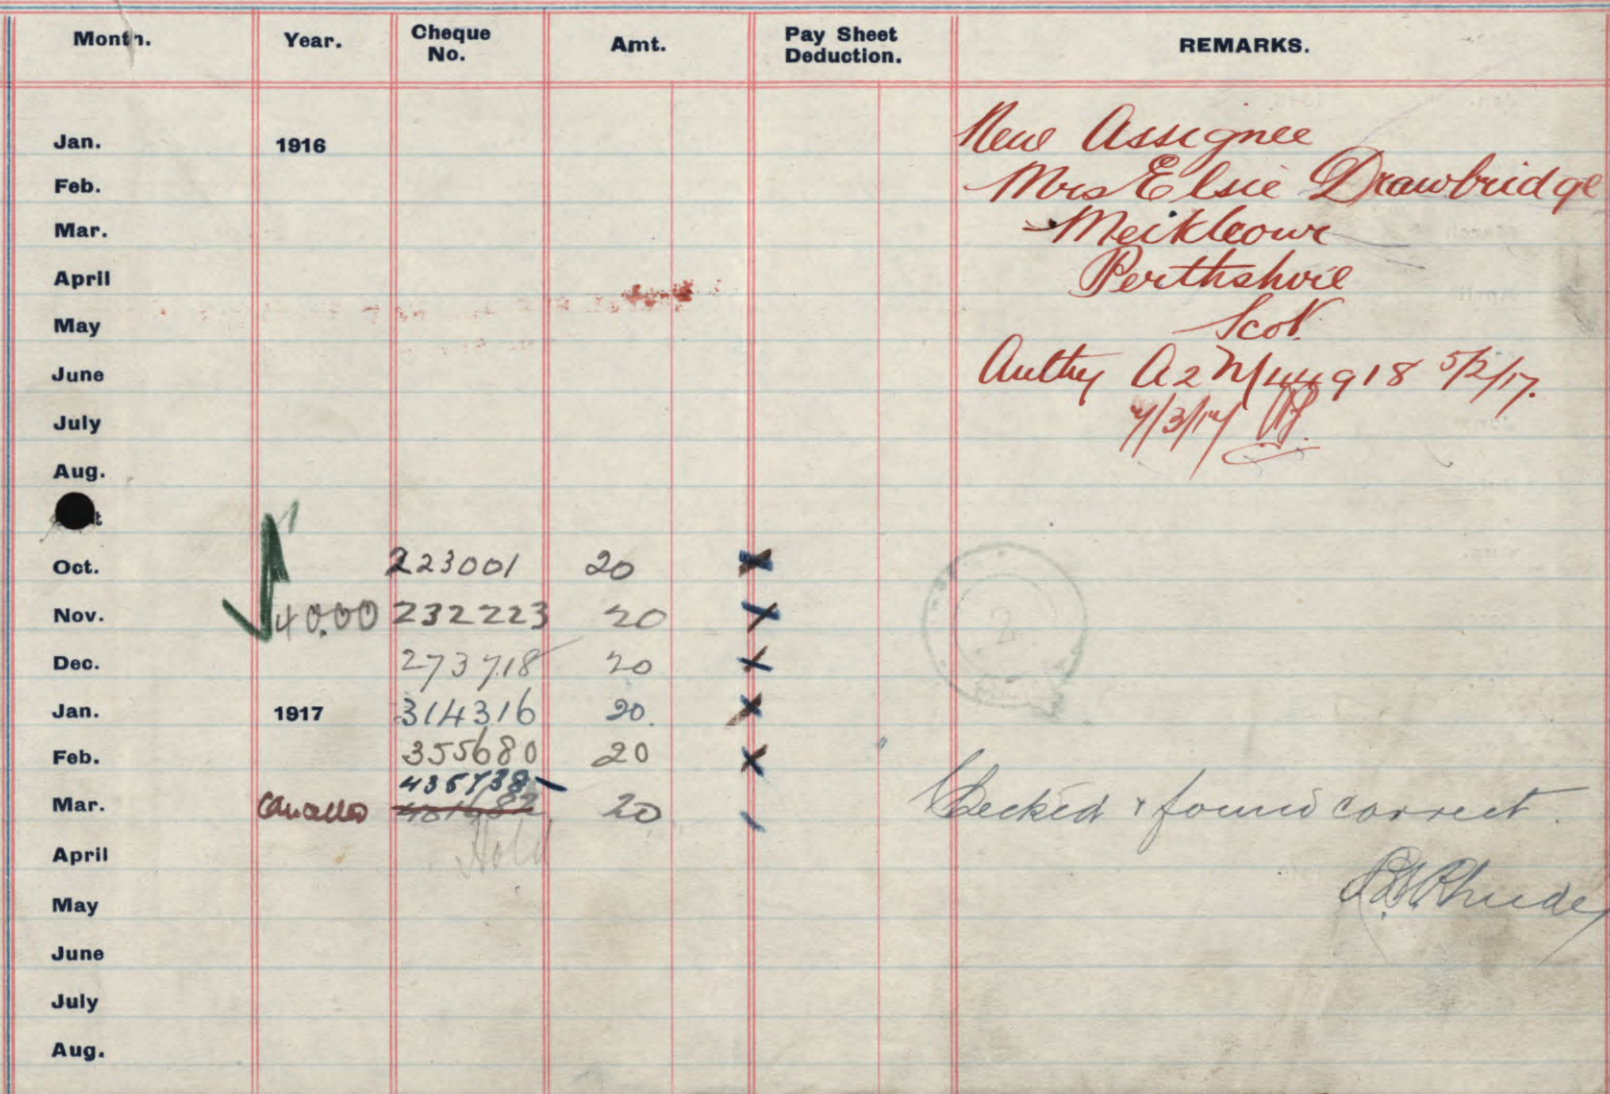 Month. Year. Cheque No. Amt. Pay Sheet Deduction. REMARKS.
Jan. 1916 New Assignee
Feb. Mrs Elsie Drawbridge
Mar. Meikleour
April Perthshire
May Scot.
June Authy A2M/44918 5/2/17.
July 7/3/17
Aug.
Oct. 223001 20 X
Nov. 40.00 232223 20 X
Dec. 273718 20 X
Jan. 1917 314316 20. X
Feb. 355680 20 X
435738
Mar. Cancelled 20 Checked & found correct.
April Hold
May
June
July
Aug.
2